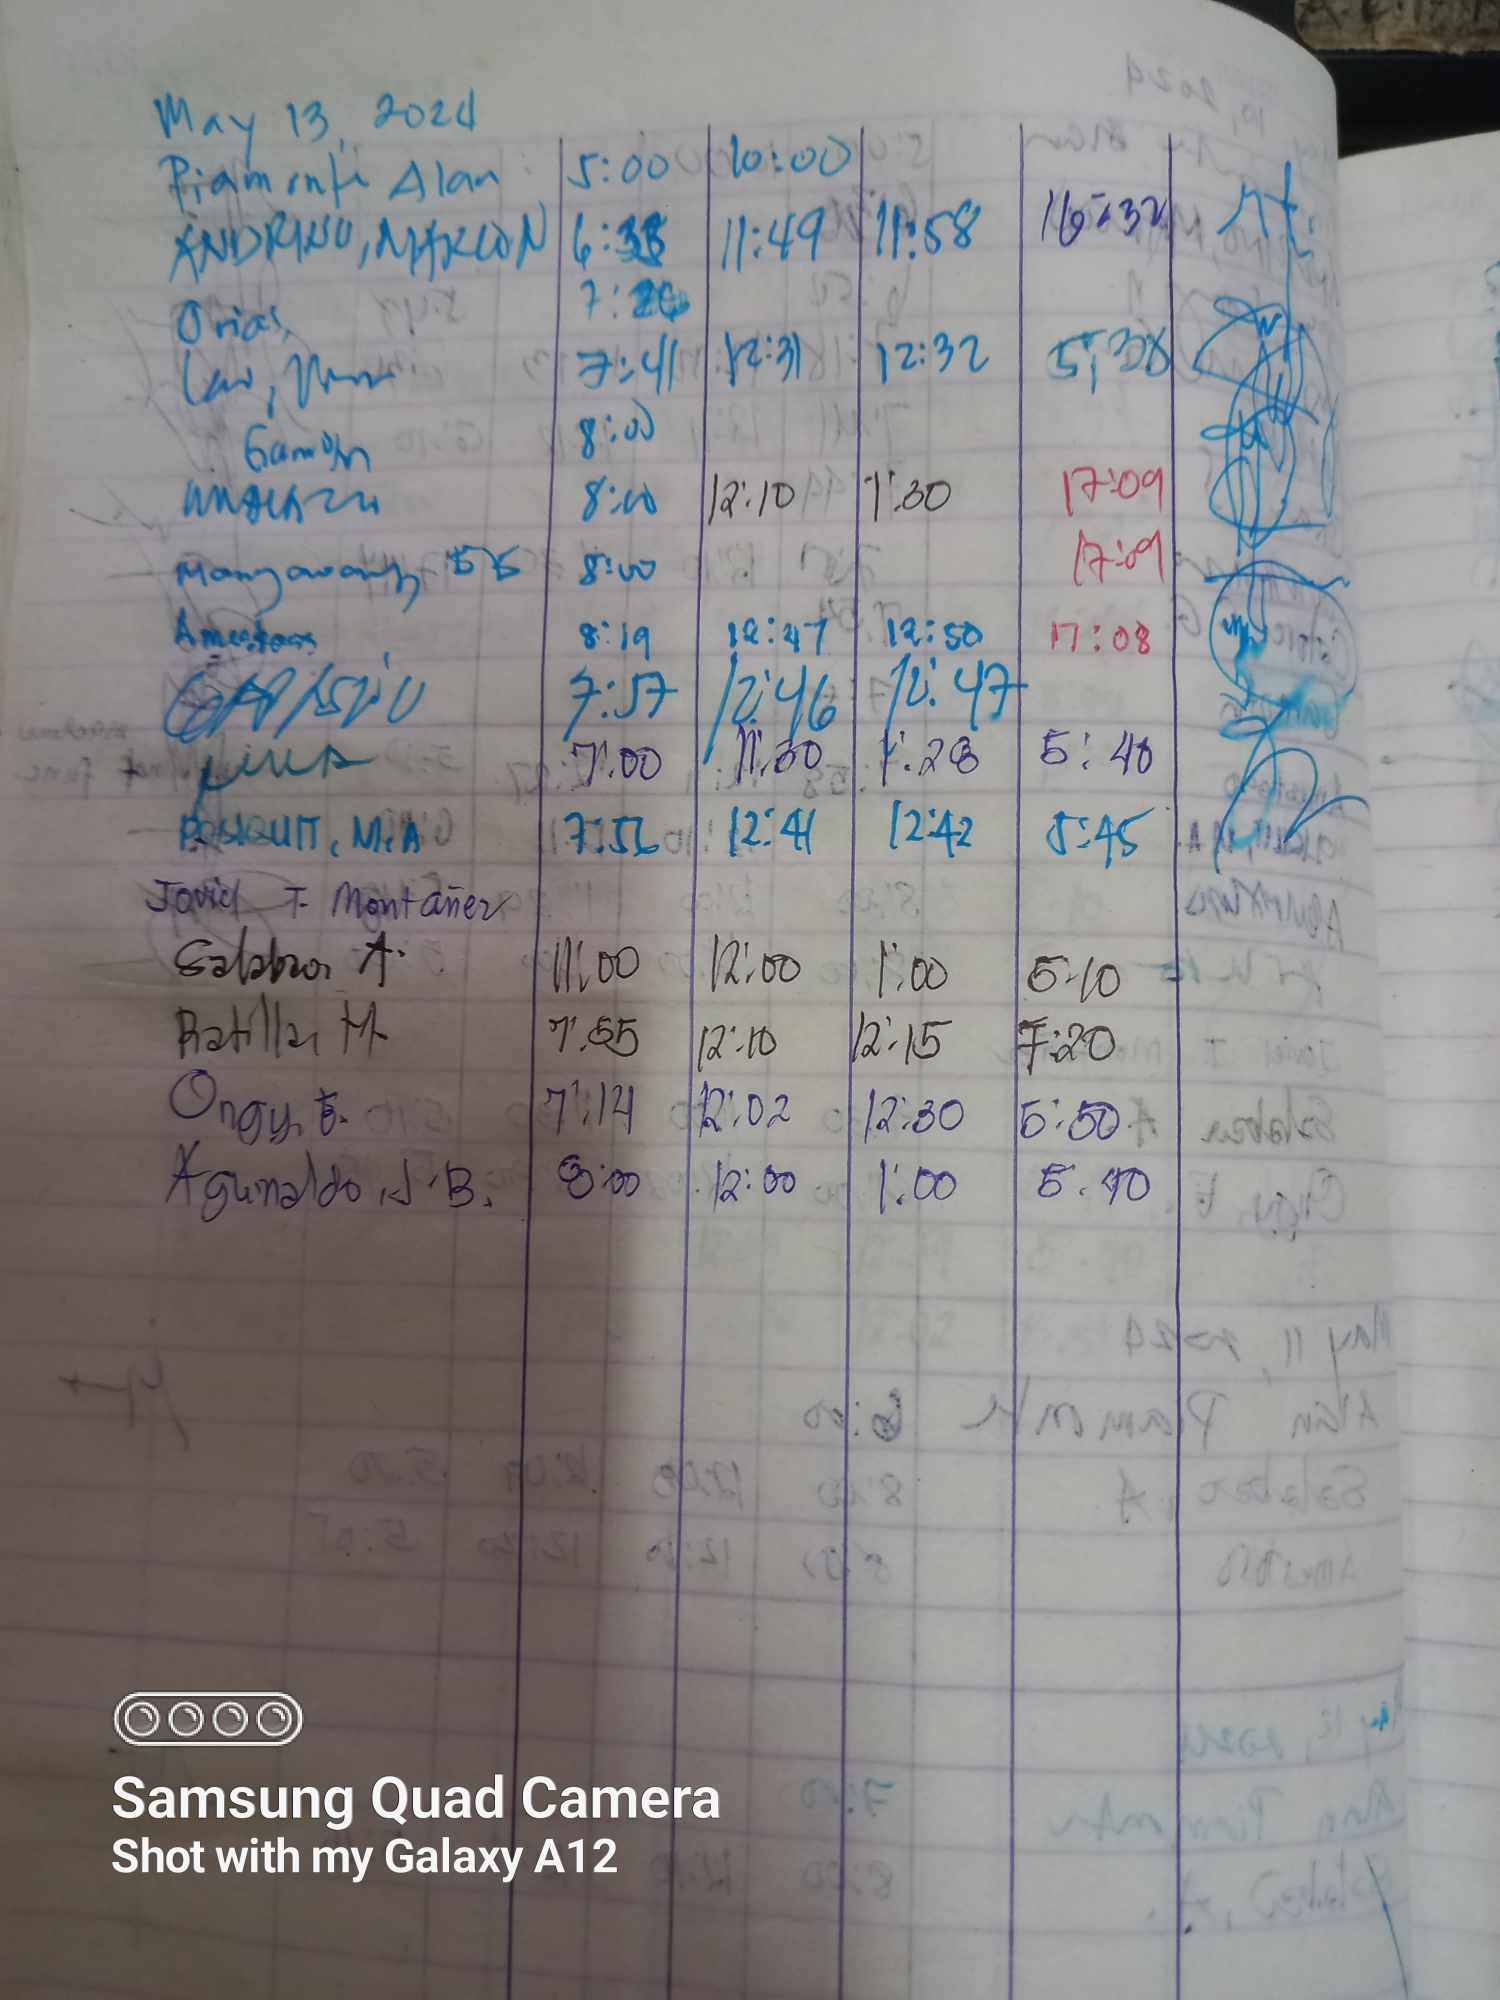 May 13, 2024
Piamonte Alan 5:00 10:00
ANDRINO, MARLON 6:33 11:49 11:58 16:32
Orias, 7:26
7:41 12:31 12:32 5:38
Gamon 8:00
8:00 12:10 1:30 17:09
8:00 17:09
8:19 12:47 12:50 17:08
7:57 12:46 12:47
7:00 11:30 1:28 5:40
M.A 7:56 12:41 12:42 5:45
Javid T. Montañez
A. 11:00 12:00 1:00 5:10
Ratilla, M 7:55 12:10 12:15 7:20
Ongy, E. 7:14 12:02 12:30 5:50
Agunaldo, J.B. 8:00 12:00 1:00 5:40
Samsung Quad Camera
Shot with my Galaxy A12